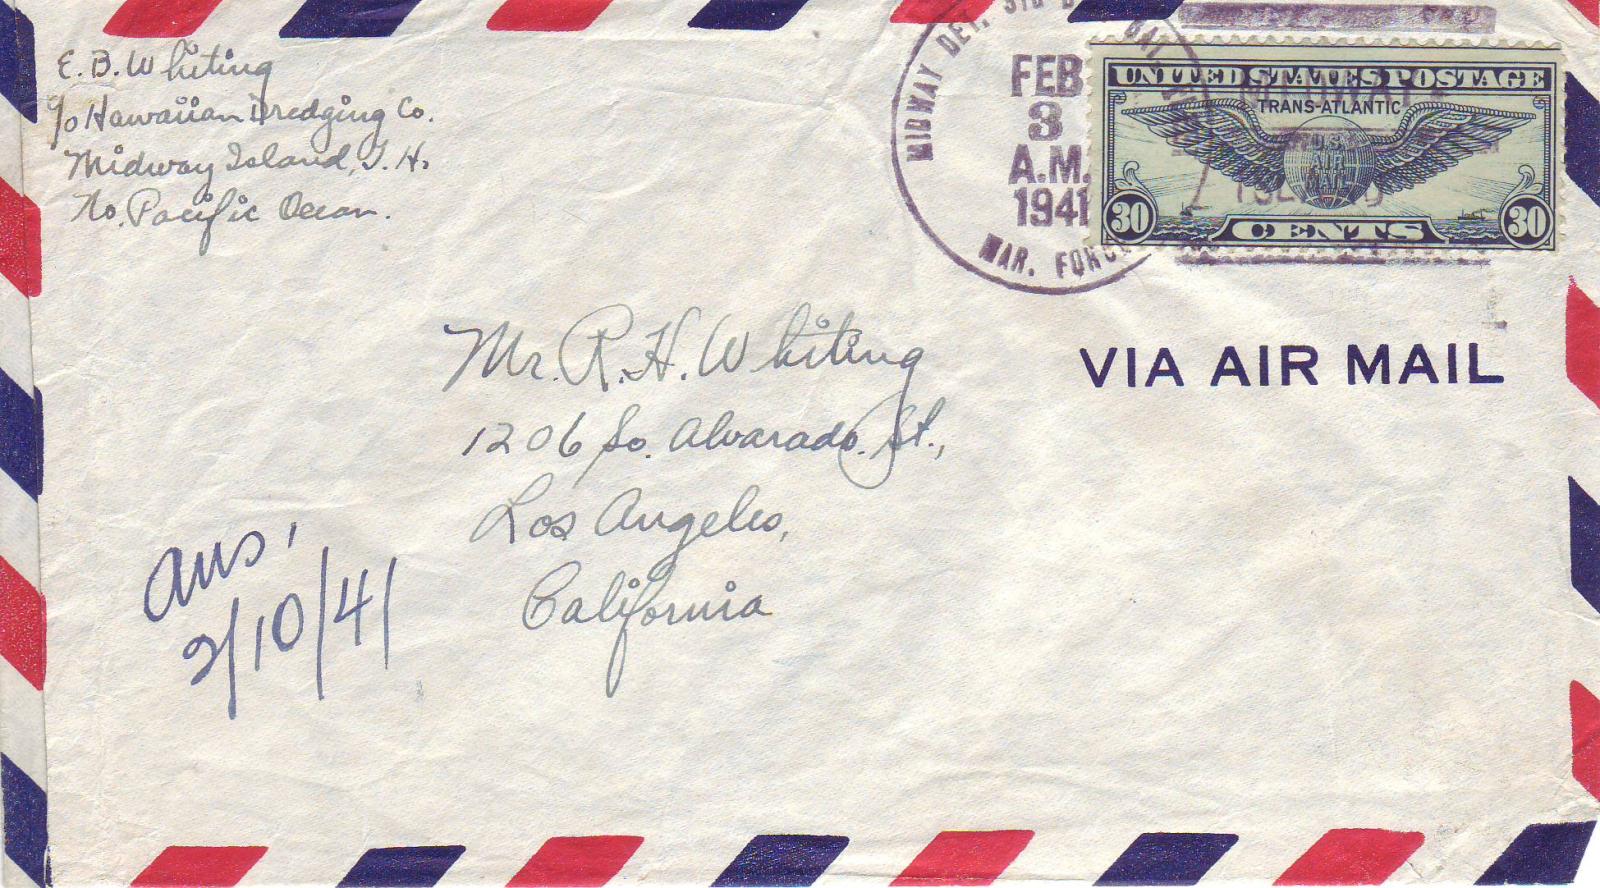 E. B. Whiting
c/o Hawaiian Dredging Co.
Midway Island, T. H.
No. Pacific Ocean.
MIDWAY DET. 3rd D
MAR. FORCE
FEB
3
A.M.
1941
UNITED STATES POSTAGE
TRANS-ATLANTIC
U.S.
AIR
MAIL
30 CENTS 30
MIDWAY
ISLAND
VIA AIR MAIL
Mr. R. H. Whiting
1206 So. Alvarado St.,
Los Angeles,
California
Ans.
2/10/41